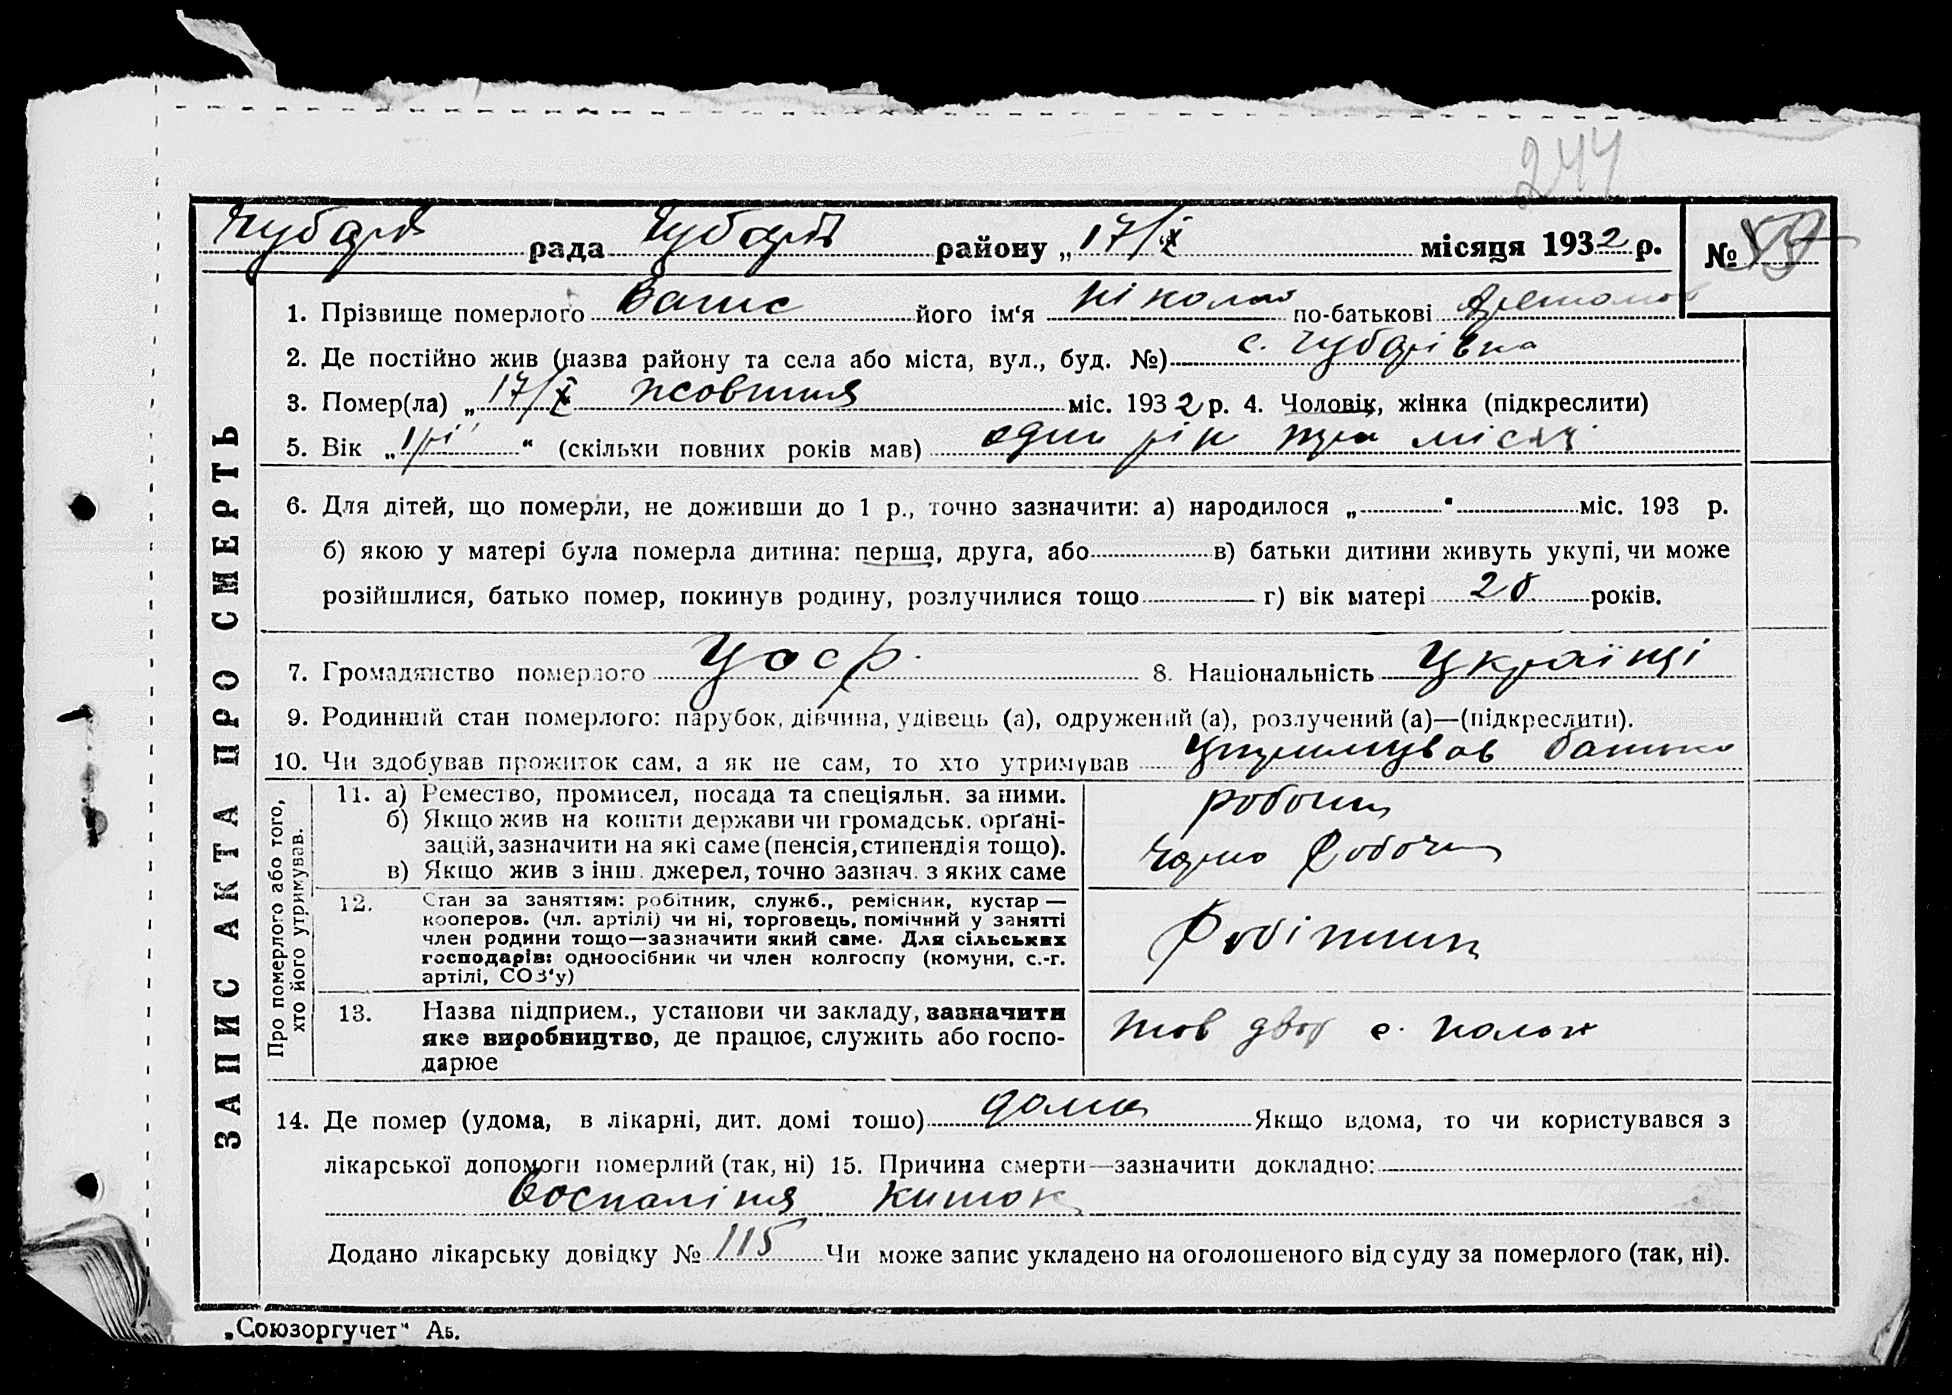 244
Чубарів рада Чубарів району „17/X місяця 1932 р. №
1. Прізвище померлого Ваис його ім‘я Ніколай по-батькові Артемов
2. Де постійно жив (назва району та села або міста, вул., буд. №) с. Чубарівка
3. Помер(ла) „17/X жовтня міс. 1932 р. 4. Чоловік, жінка (підкреслити)
5. Вік „1 рі “ (скільки повних років мав) один рік три місяці
6. Для дітей, що померли, не доживши до 1 р., точно зазначити: а) народилося „ “ міс. 193 р.
б) якою у матері була померла дитина: перша, друга, або в) батьки дитини живуть укупі, чи може
розійшлися, батько помер, покинув родину, розлучилися тощо г) вік матері років.
7. Громадянство померлого УССР 8. Національність Українці
9. Родинний стан померлого: парубок, дівчина, удівець (а), одружений (а), розлучений (а)—(підкреслити).
10. Чи здобував прожиток сам, а як не сам, то хто утримував Утримував батько
ЗАПИС АКТА ПРО СМЕРТЬ
Про померлого або того,
хто його утримував.
11. а) Ремество, промисел, посада та спеціяльн. за ними.
б) Якщо жив на кошти держави чи громадськ. орґані-
зацій, зазначити на які саме (пенсія, стипендія тощо).
в) Якщо жив з інш. джерел, точно зазнач. з яких саме
робочий
Чорно робочий
12. Стан за заняттям: робітник, служб., ремісник, кустар —
кооперов. (чл. артілі) чи ні, торговець, помічний у занятті
член родини тощо—зазначити який саме. Для сільських
господарів: одноосібник чи член колгоспу (комуни, с.-г.
артілі, СОЗ‘у)
Робітник
13. Назва підприєм., установи чи закладу, зазначити
яке виробництво, де працює, служить або госпо-
дарюе
тов двор с.
14. Де помер (удома, в лікарні, дит. домі тошо) дома Якщо вдома, то чи користувався з
лікарської допомоги померлий (так, ні) 15. Причина смерти—зазначити докладно:
Воспаління кишок
Додано лікарську довідку № 115 Чи може запис укладено на оголошеного від суду за померлого (так, ні).
„Союзоргучет“ Аб.